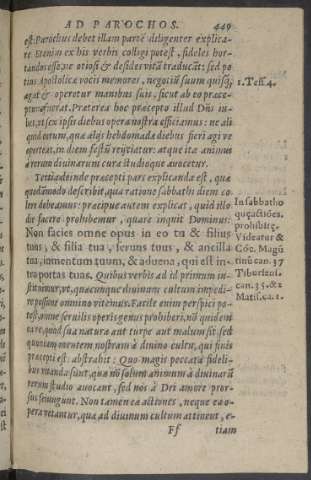 AD PAROCHOS. 449
est. Parochus debet illam partē diligenter explica-
re. Etenim ex his verbis colligi potest, fideles hor-
tandos esse, ne otiosi & desides vitā traducāt: sed po
tius Apostolicæ vocis memores, negotiū suum quisq;
agat & operetur manibus suis, sicut ab eo præce-
ptum fuerat. Præterea hoc præcepto illud Dñs iu-
bet, vt sex ipsis diebus opera nostra efficiamus: ne ali
quid eorum, quæ alijs hebdomadæ diebus fieri agi ve
oporteat, in diem festū reijciatur: atque ita animus
a rerum diuinarum cura studioque auocetur.
Tertia deinde præcepti pars explicanda est, quæ
quodāmodo describit, qua ratione sabbathi diem co
lere debeamus: præcipue autem explicat, quid illo
die facere prohibemur, quare inquit Dominus:
Non facies omne opus in eo tu & filius
tuus, & filia tua, seruus tuus, & ancilla
tua, iumentum tuum, & aduena, qui est in-
tra portas tuas. Quibus verbis ad id primum in-
stituimur, vt, quæcunque diuinum cultum impedi-
re possunt omnino vitemus. Facile enim perspici po-
test, omne seruilis operis genus prohiberi, nō quidem
ea re, quod sua natura aut turpe aut malum sit, sed
quoniam mentem nostram à diuino cultu, qui finis
præcepti est abstrahit: Quo magis peccata fideli-
bus vitanda sunt, quæ nō solum animum à diuinarū
rerum studio auocant, sed nos à Dei amore pror-
sus seiungunt. Non tamen eæ actiones, neque ea o-
pera vetantur, quæ ad diuinum cultum attinent, e-
Ff tiam
1. Tess. 4.
In sabbatho
quę actiōes.
prohibitę.
Videatur &
Cōc. Magū
tinū can. 37
Tiburiens.
can. 35. & 2
Matis. ca. 1.